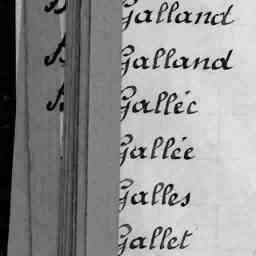 Galland
Galland
Galléc
Gallée
Galles
Gallet